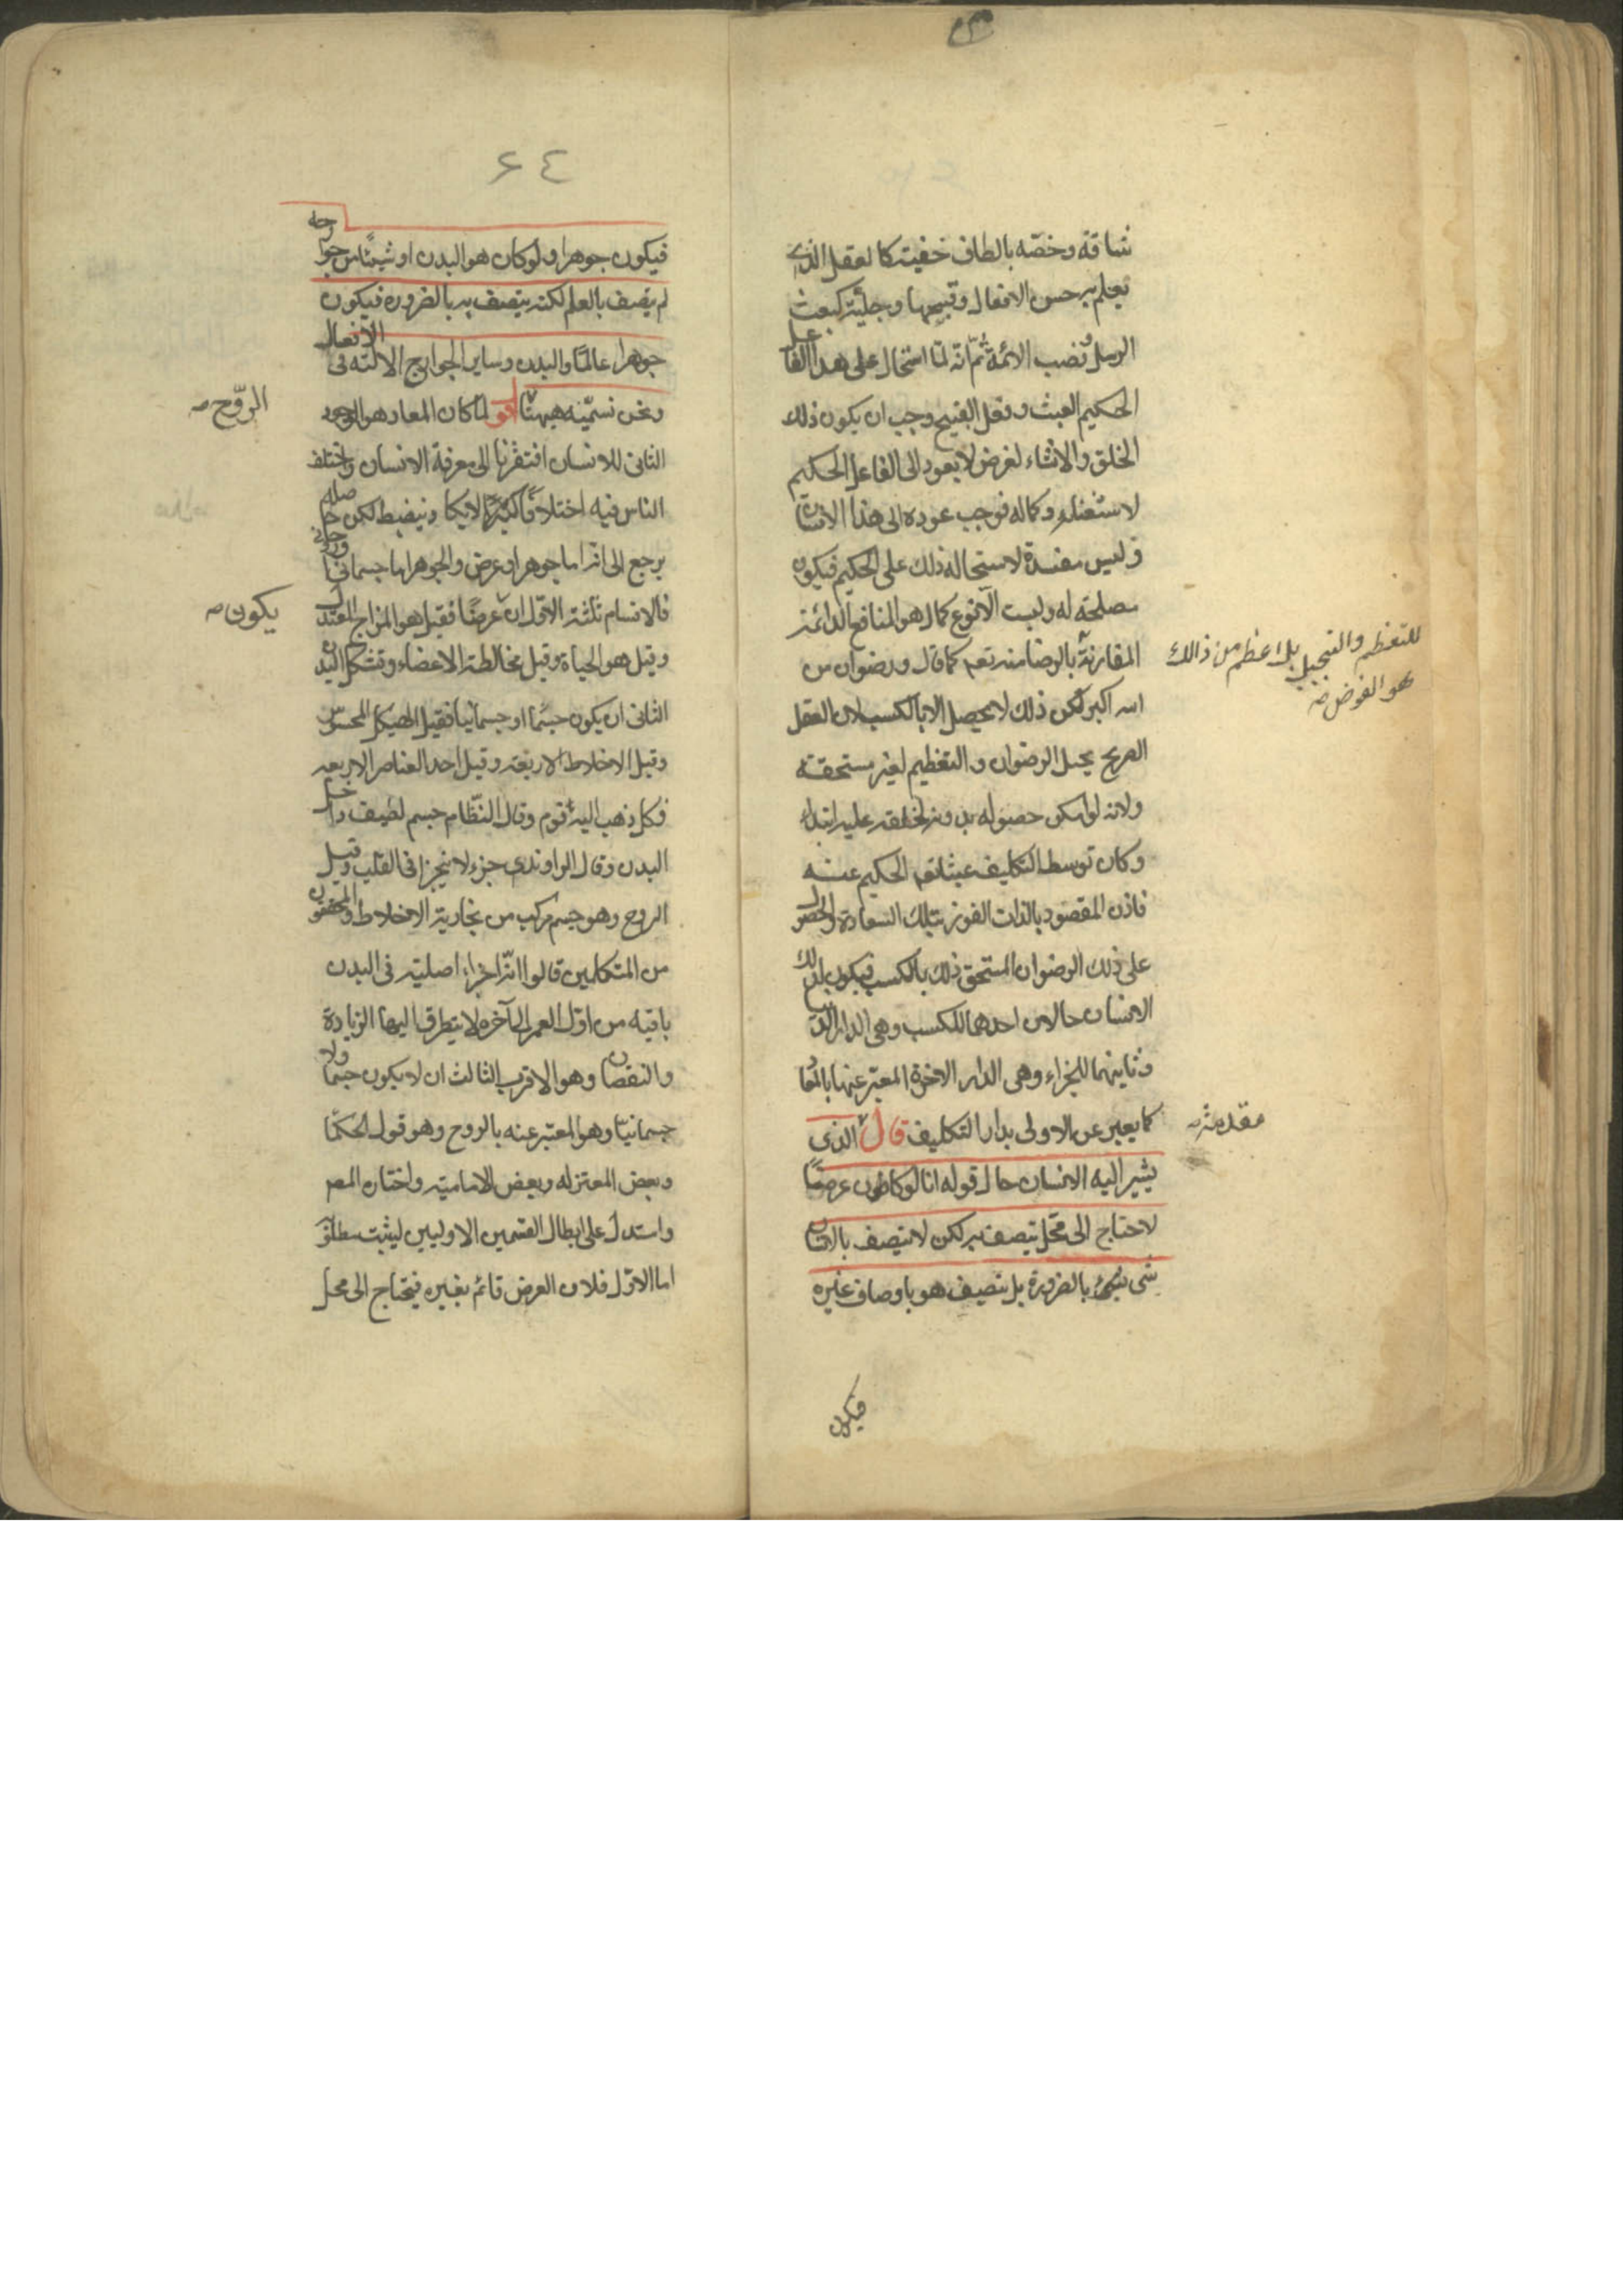 شاقة وخصّه بالطاف خفيّة كالعقل الذي
يعلم به حسن الافعال وقبيحها وجليّة كبعث
الرسل ونصب الائمة ثمّ انّه لمّا استحال على هذا الفاعل
الحكيم العبث وفعل القبيح وجب ان يكون ذلك
الخلق والانشاء لغرض لا يعود الى الفاعل الحكيم
لاستغنائه وكماله فوجب عوده الى هذا الانسان
وليس مفسدة لاستحالة ذلك على الحكيم فيكون
مصلحة له وليست الا نوع كمال هو المنافع الدائمة
المقارنة بالرضا منه تعم كما قال ورضوان من
الله اكبر لكن ذلك لا يحصل الا بالكسب لان العقل
الصريح يحيل الرضوان والتعظيم لغير مستحقه
ولانه لو امكن حصوله بدونه لخلقه عليه ابتداء
وكان توسط التكليف عبثا تعم الحكيم عنه
فاذن المقصود بالذات الفوز بتلك السعادة والحصول
على ذلك الرضوان المستحق ذلك بالكسب فيكون لذلك
الانسان حالان احدهما للكسب وهى الدار الدنيا
وثانيهما للجزاء وهى الدار الاخرة المعبّر عنها بالمعاد
كما يعبر عن الاولى بدار التكليف قال الذى
يشير اليه الانسان حال قوله انا لو كان عرضًا
لاحتاج الى محّل يتصف به لكن لا يتصف بالانسان
شى بالضرورة بل يتصف هو باوصاف غيره
فيكون
للتعظيم والتبجيل بل اعظم من ذالك
هو الفوض صه
مقدمة صه
٤٤
فيكون جوهرا ولو كان هو البدن او شيئًا من جوارحه
لم يتصف بالعلم لكنه يتصف به بالضرورة فيكون
جوهرا عالمًا والبدن وساير الجوارح الاته فى الافعال
ونحن نسمّيه هيهنا اقو لمّا كان المعاد هو الوجود
الثانى للانسان افتقرنا الى معرفة الانسان واختلف
الناس فيه اختلافًا كثيرًا لا يكاد ينضبط لكن حاصله
يرجع الى انّه اما جوهر او عرض والجوهر اما جسمانى
فالاقسام ثلثة الاوّل ان عرضًا فقيل هو المزاج المعتدل
وقيل هو الحياة وقيل تخاطيط الاعضاء وتشكل البدن
الثانى ان يكون جسمًا او جسمانيا فقيل الهيكل المحسوس
وقيل الاخلاط الاربعة وقيل احد العناصر الاربعه
فكل ذهب اليه قوم وقال النّظام جسم لطيف داخل
البدن وقال الراوندى جزء لا يتجزا فى القلب وقيل
الروح وهو جسم مركب من بخارية الاخلاط والمحققون
من المتكلمين قالوا انّه اجزاء اصلية فى البدن
باقيه من اوّل العمر الى آخره لا يتطرق اليها الزيادة
والنقصان وهو الاقرب الثالث ان لا يكون جسما ولا
جسمانيّا وهو المعبّر عنه بالروح وهو قول الحكما
وبعض المعتزله وبعض الاماميّه واختاره المص
واستدل على ابطال القسمين الاوليين ليثبت مطلوبه
اما الاوّل فلان العرض قائم بغيره فيحتاج الى محل
الروّح صه
يكون صه